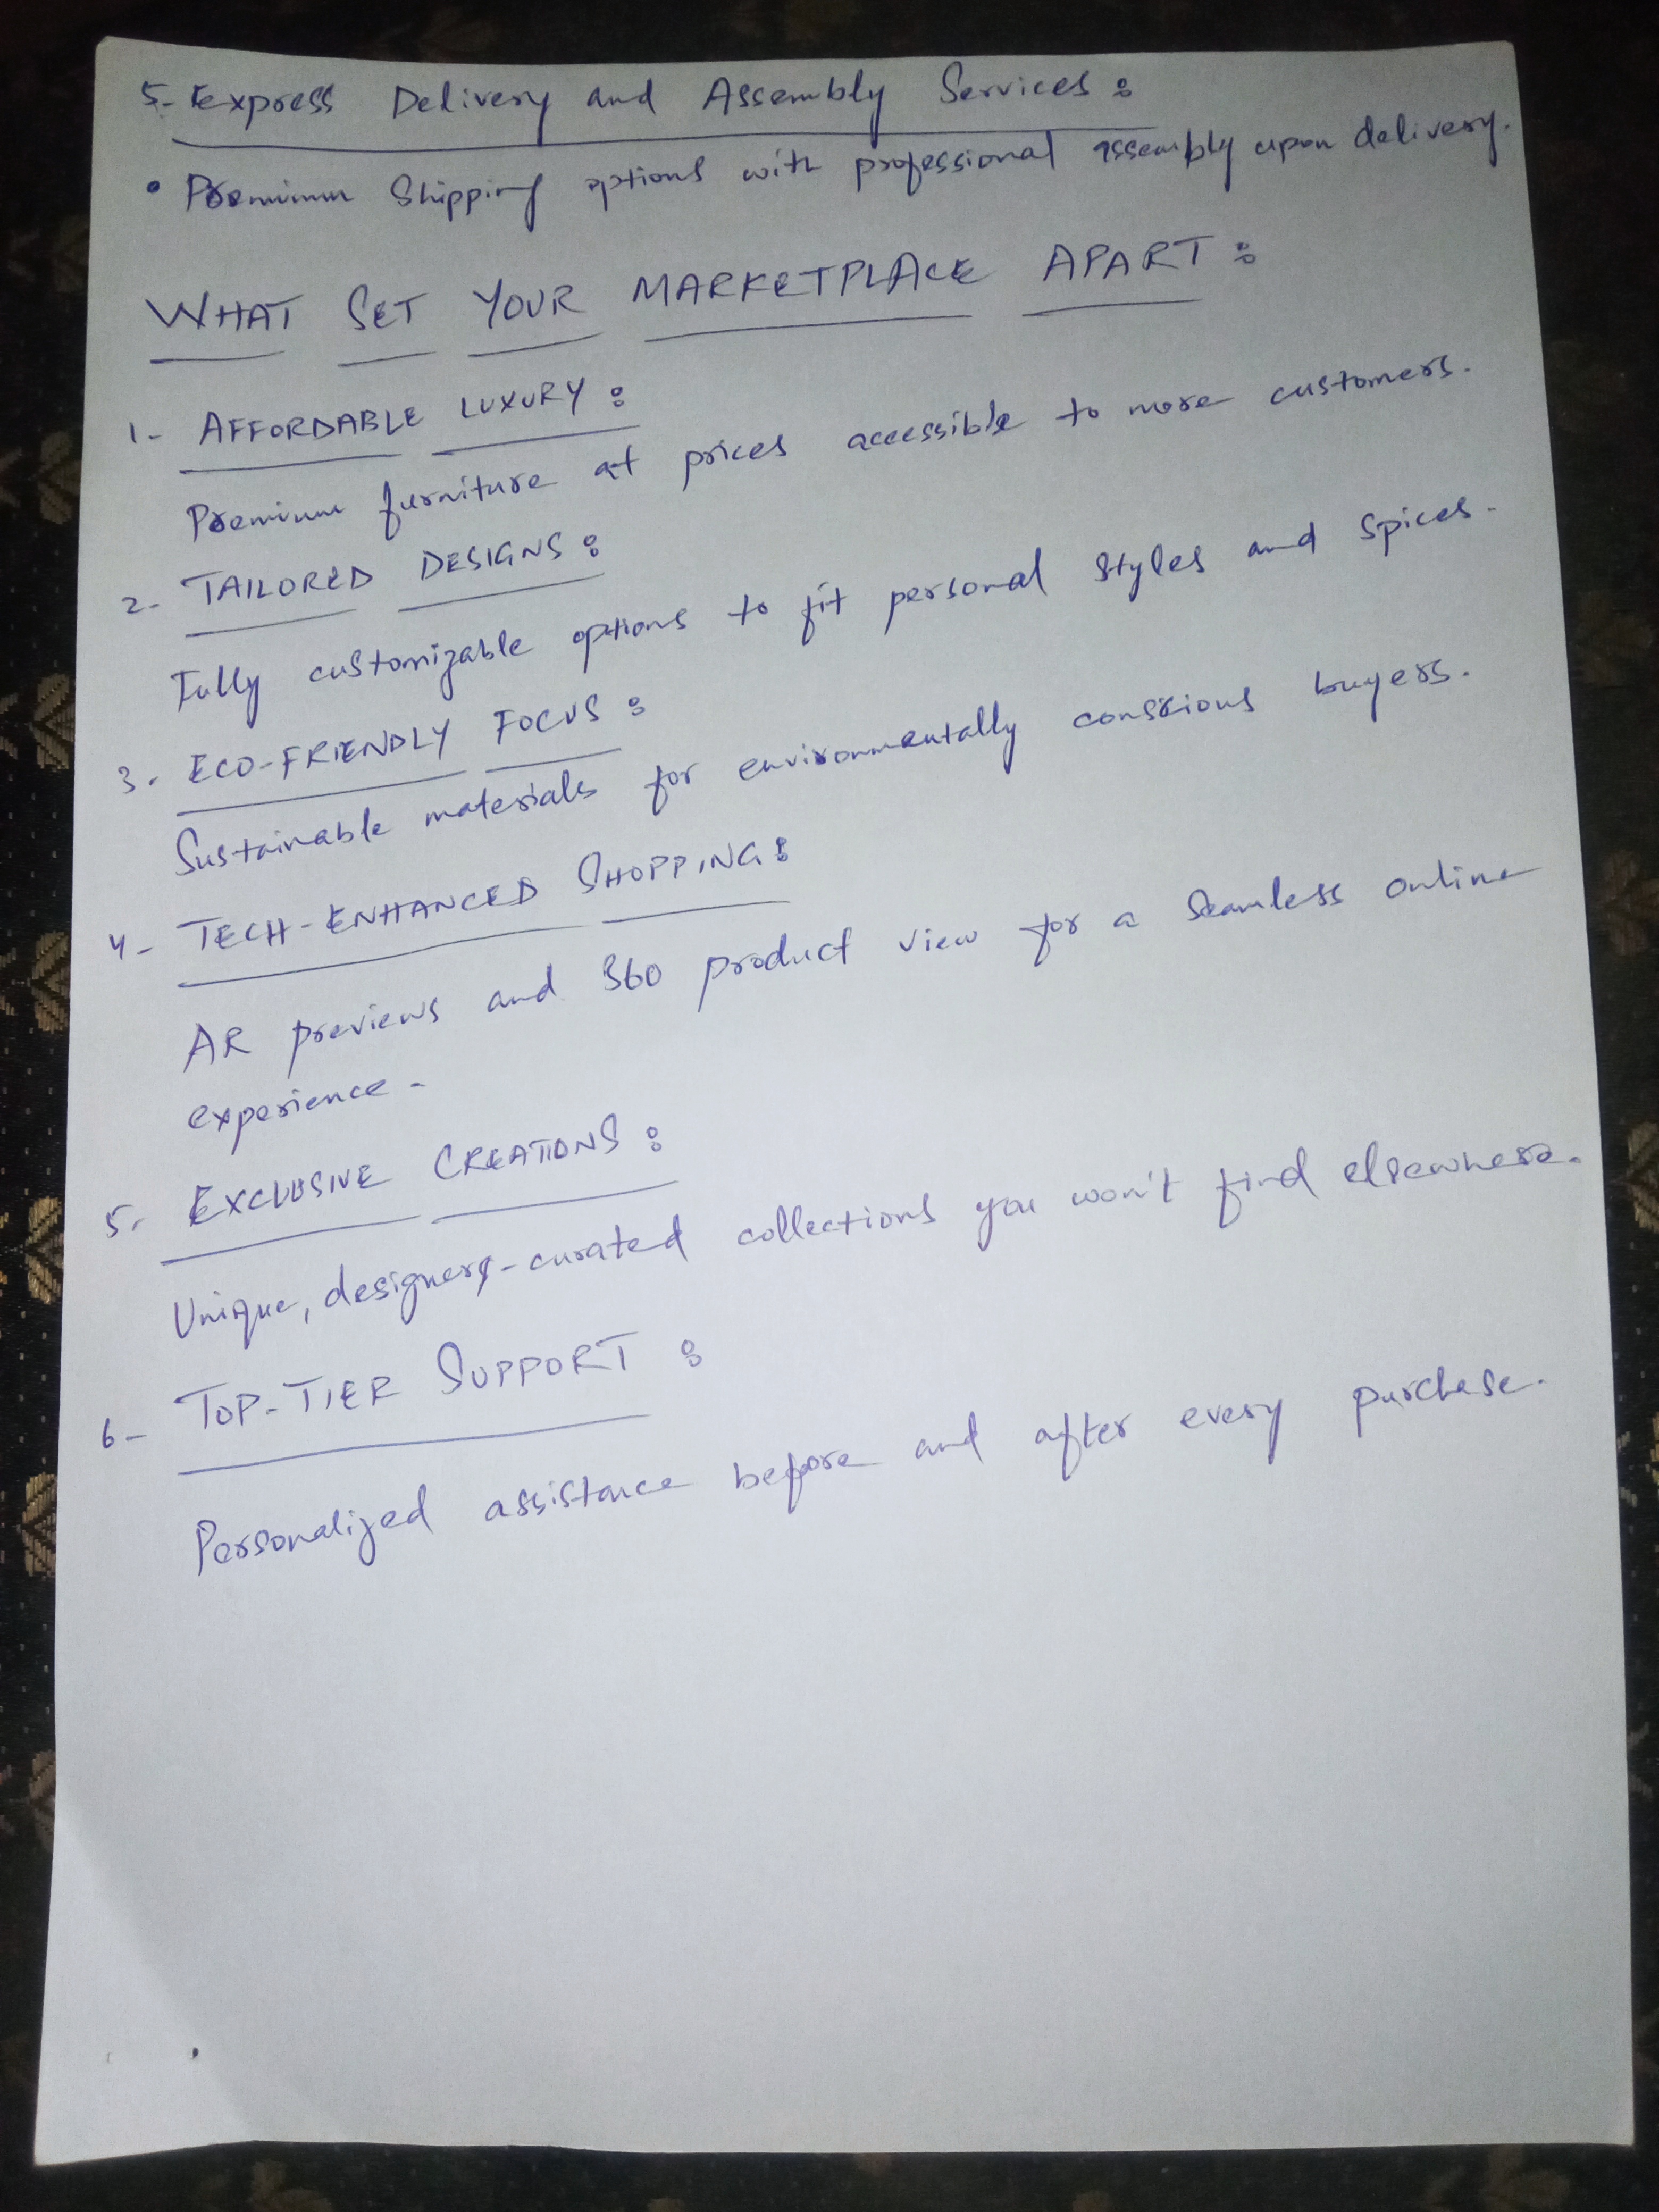 5- Express Delivery and Assembly Services:
• Premium Shipping options with professional assembly upon delivery.
WHAT SET YOUR MARKETPLACE APART:
1- AFFORDABLE LUXURY:
Premium furniture at prices accessible to more customers.
2- TAILORED DESIGNS:
Fully customizable options to fit personal styles and spices.
3. ECO-FRIENDLY FOCUS:
Sustainable materials for environmentally conscious buyers.
4- TECH-ENHANCED SHOPPING:
AR previews and 360 product view for a seamless online
experience.
5. EXCLUSIVE CREATIONS:
Unique, designers-curated collections you won't find elsewhere.
6- TOP-TIER SUPPORT:
Personalized assistance before and after every purchase.